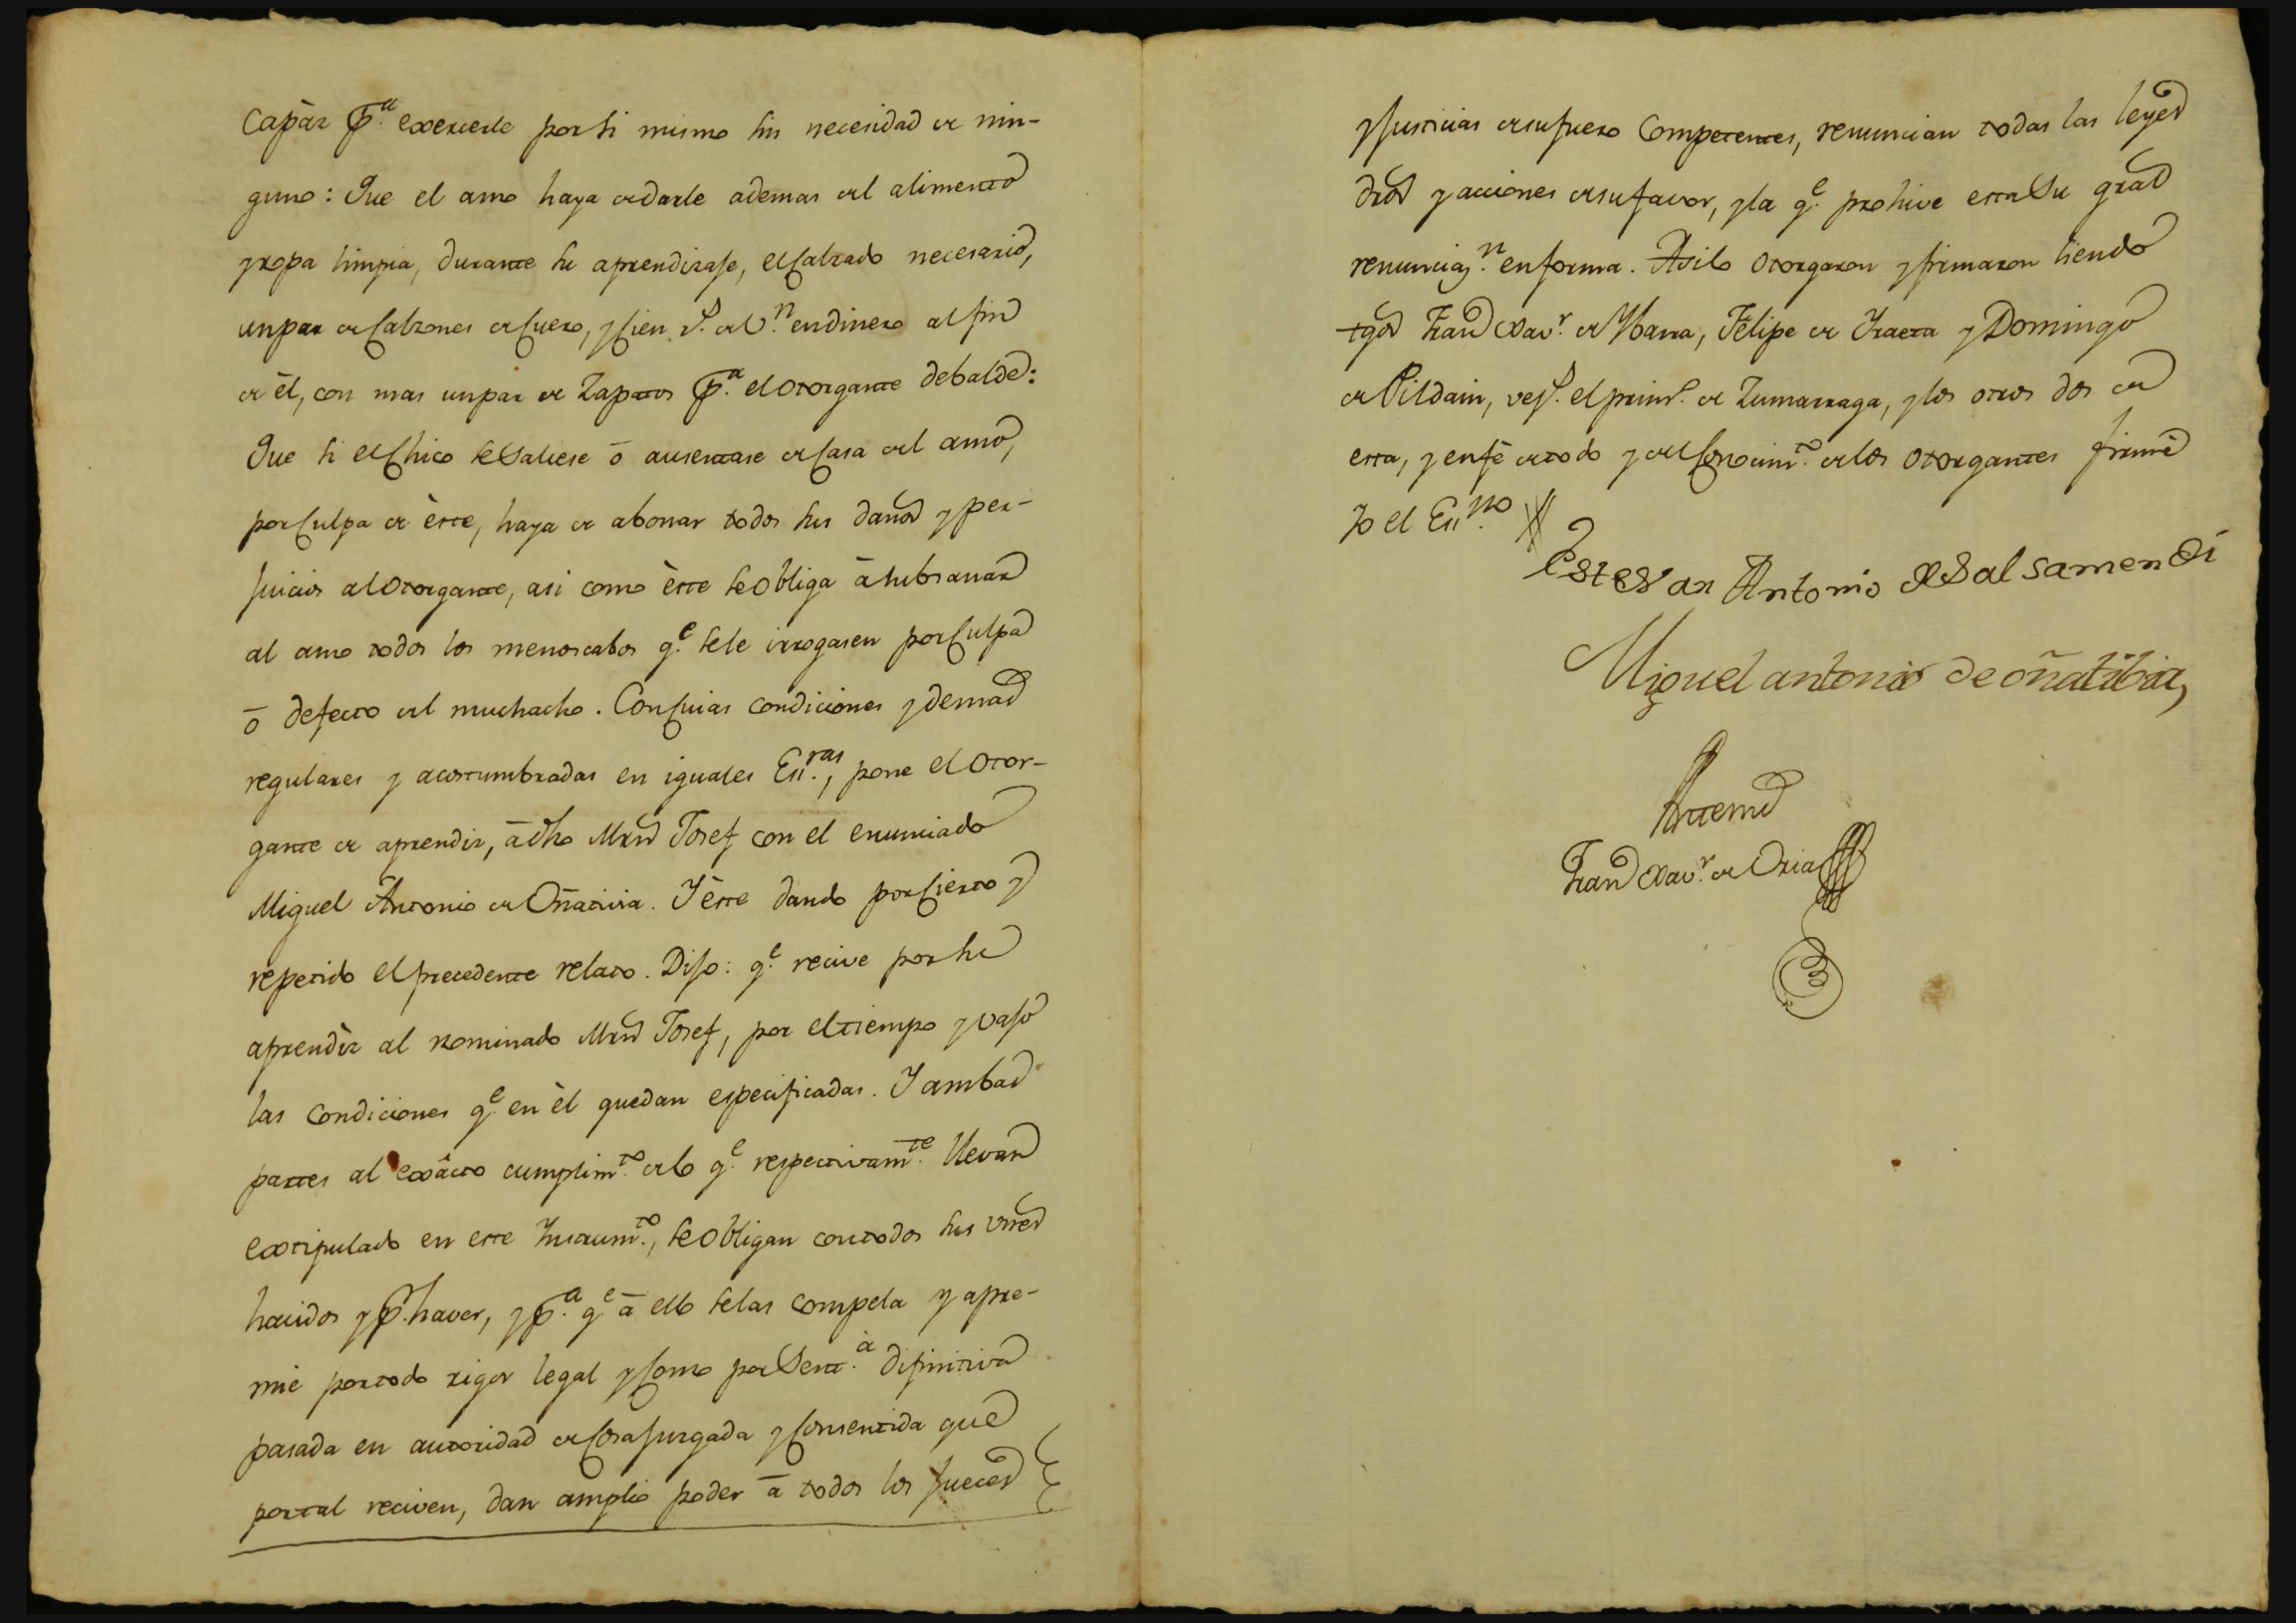 Capàz p.ª exercerle por si mismo sin necesidad de nin-
guno: Que el amo haya de darle ademas del alimento
y ropa limpia, durante su aprendizaje, el Calzado necesario,
un par de Calzones de Cuero, y Cien r.s de v.n en dinero al fin
de èl, con mas un par de Zapatos p.ª el otorgante debalde:
Que si el Chico se saliese ō ausentase de Casa del amo,
por Culpa de èste, haya de abonar todos sus daños y per-
juicios al otorgante, asi como èste se obliga ā subsanar
al amo todos los menoscabos q.e se le irrogasen por Culpa
ō defecto del muchacho. Con Cuias condiciones y demas
regulares y acostumbradas en iguales Ess.ras, pone el otor-
gante de aprendiz, ā dho Mrn Josef con el enunciado
Miguel Antonio de Oñativia. Y èste dando por Cierto y
repetido el precedente relato. Dijo: q.e recive por su
aprendìz al nominado Mrn Josef, por el tiempo y vajo
las Condiciones q.e en èl quedan especificadas. Y ambas
partes al exâcto cumplim.to de lo q.e respectivam.te llevan
extipulado en este Instrum.to, se obligan con todos sus vnes
havidos y p.r haver, y p.ª q.e ā ello se las compela y apre-
mie por todo rigor legal y Como por Sent.ª difinitiva
pasada en autoridad de Cosa juzgada y Consentida que
por tal reciven, dan amplio poder ā todos los Jueces
y Justicias de su fuero Competentes, renuncian todas las leyes
dros y acciones de su favor, y la q.e prohive esta Su gral
renunciaz.n en forma. Asi lo otorgaron y firmaron siendo
tgos Fran.co Xav.r de Ybarra, Felipe de Yraeta y Domingo
de Pildain, vez.s el prim.o de Zumarraga, y los otros dos de
esta, y en fè de todo y del Conocim.to de los otorgantes firmè
yo el Ess.no
Estevan Antonio de Salsamendi
Miguel antonio de oñatibia,
Antemi
Fran.co Xav.r de Oria